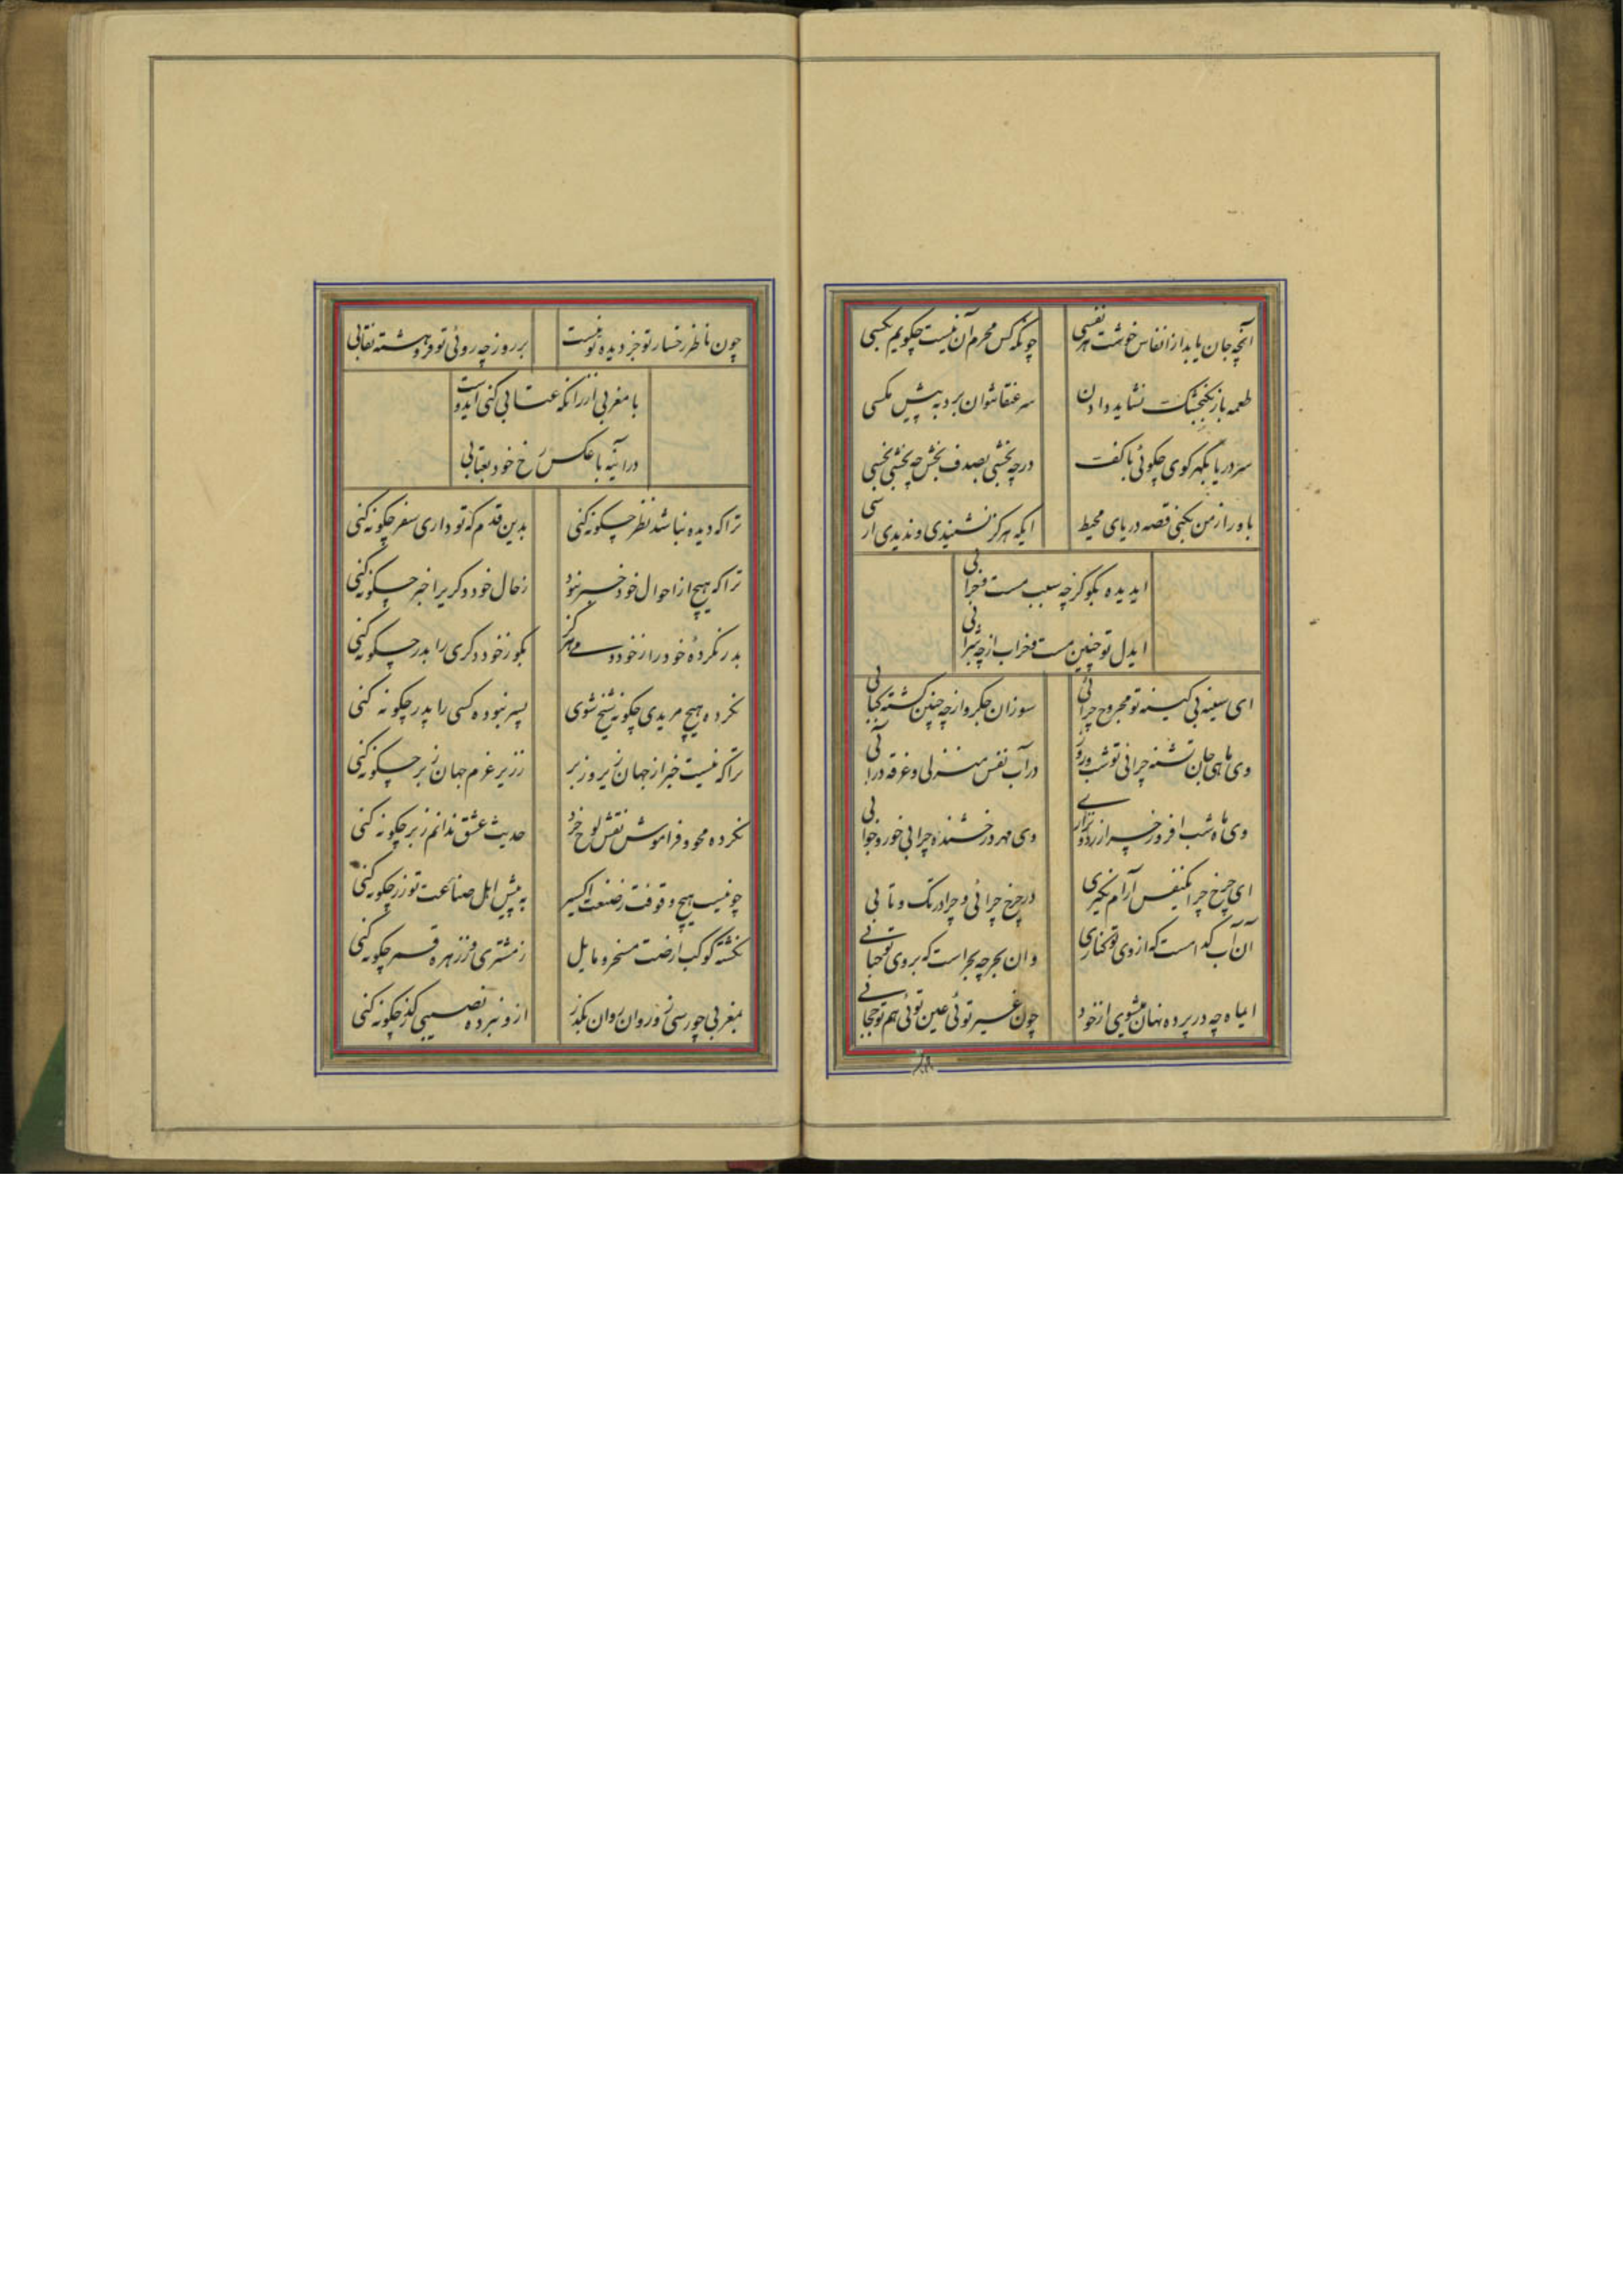 آنچه جان یابد از انفاس خوشت هر نفسی
چونکه کس محرم آن نیست چکویم بکسی
طعمه باز بکنجشک نشاید دادن
سر عنقا نتوان برد به پیش مکسی
سر دریا بکهر کوی چکوئی با کف
در چه بخشی بصدف بخش چه بخشی بخسی
باور از من نکنی قصه دریای محیط
ایکه هرکز نشنیدی و ندیدی ارسی
ایدیده بکو کز چه سبب مست و خرابی
ایدل تو چنین مست و خراب از چه شرابی
ای سینه بی کینه تو مجروح چرائی
سوزان جکر و از چه چنین کشته کبابی
وی ماهی جان تشنه چرائی تو شب و روز
در آب نفس منزلی و غرقه در آبی
وی ماه شب افروز چرا زرد و نزاری
وی مهر درخشنده چرا بی خور و خوابی
ای چرخ چرا یکنفس آرام نکیری
در چرخ چرائی و چرا در تک و تابی
آن آب کدامست که از وی تو بخاری
وان بحر چه بحر است که بر وی تو حبابی
ایماه چه در پرده نهان میشوی از خود
چون غیر توئی عین توئی هم تو حجابی
چون ناظر رخسار تو جز دیده تو نیست
بر روز چه روئی تو فرو هشته نقابی
با مغربی ار زانکه عتابی کنی ایدوست
در آینه با عکس رخ خود بعتابی
ترا که دیده نباشد نظر چکونه کنی
بدین قدم که تو داری سفر چکونه کنی
ترا که هیچ از احوال خود خبر نبود
زحال خود دکریرا خبر چکونه کنی
بدر نکردهٔ خود را ز خود دمی هرکز
بکو ز خود دکری را بدر چکونه کنی
نکرده هیچ مریدی چکونه شیخ شوی
پسر نبوده کسی را پدر چکونه کنی
ترا که نیست خبر از جهان زیر و زبر
ز زیر عزم جهان زبر چکونه کنی
نکرده محو و فراموش نقش لوح خرد
حدیث عشق ندانم ز بر چکونه کنی
چو نیست هیچ وقوفت ز صنعت اکسیر
به پیش اهل صناعت تو زر چکونه کنی
نکشته کوکب ارضت مسخر و مایل
ز مشتری و ز زهره قمر چکونه کنی
بمغربی چو رسی زو روان روان بکذر
ازو نبرده نصیبی کذر چکونه کنی